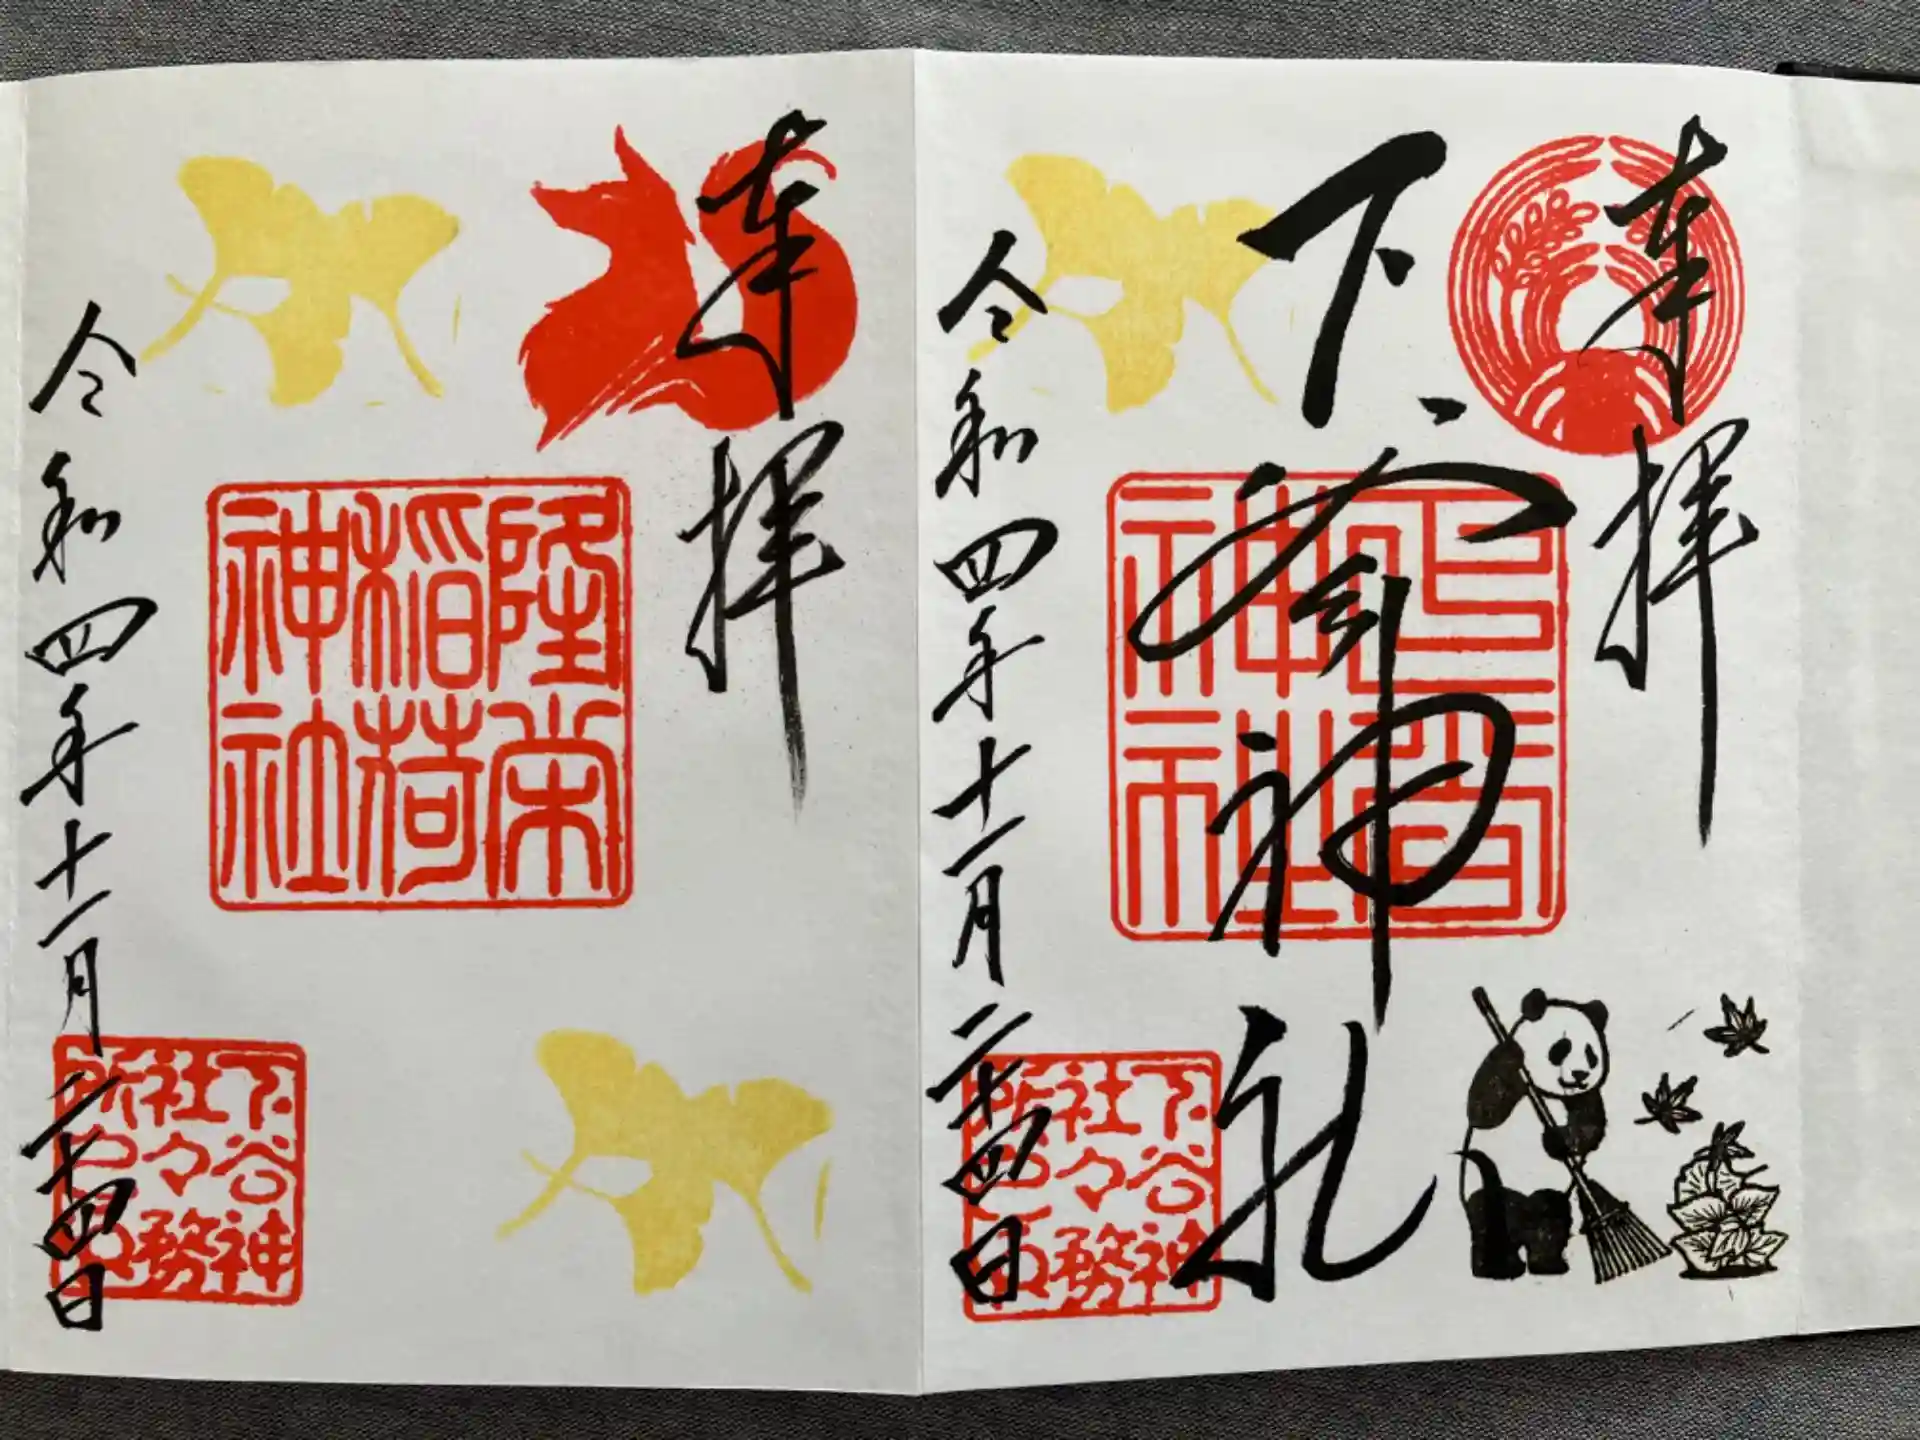 奉拝
下谷神社
下谷
神社
令和四年十一月二十四日
下谷神
社々務
所之印
奉拝
隆栄
稲荷
神社
令和四年十一月二十四日
下谷神
社々務
所之印